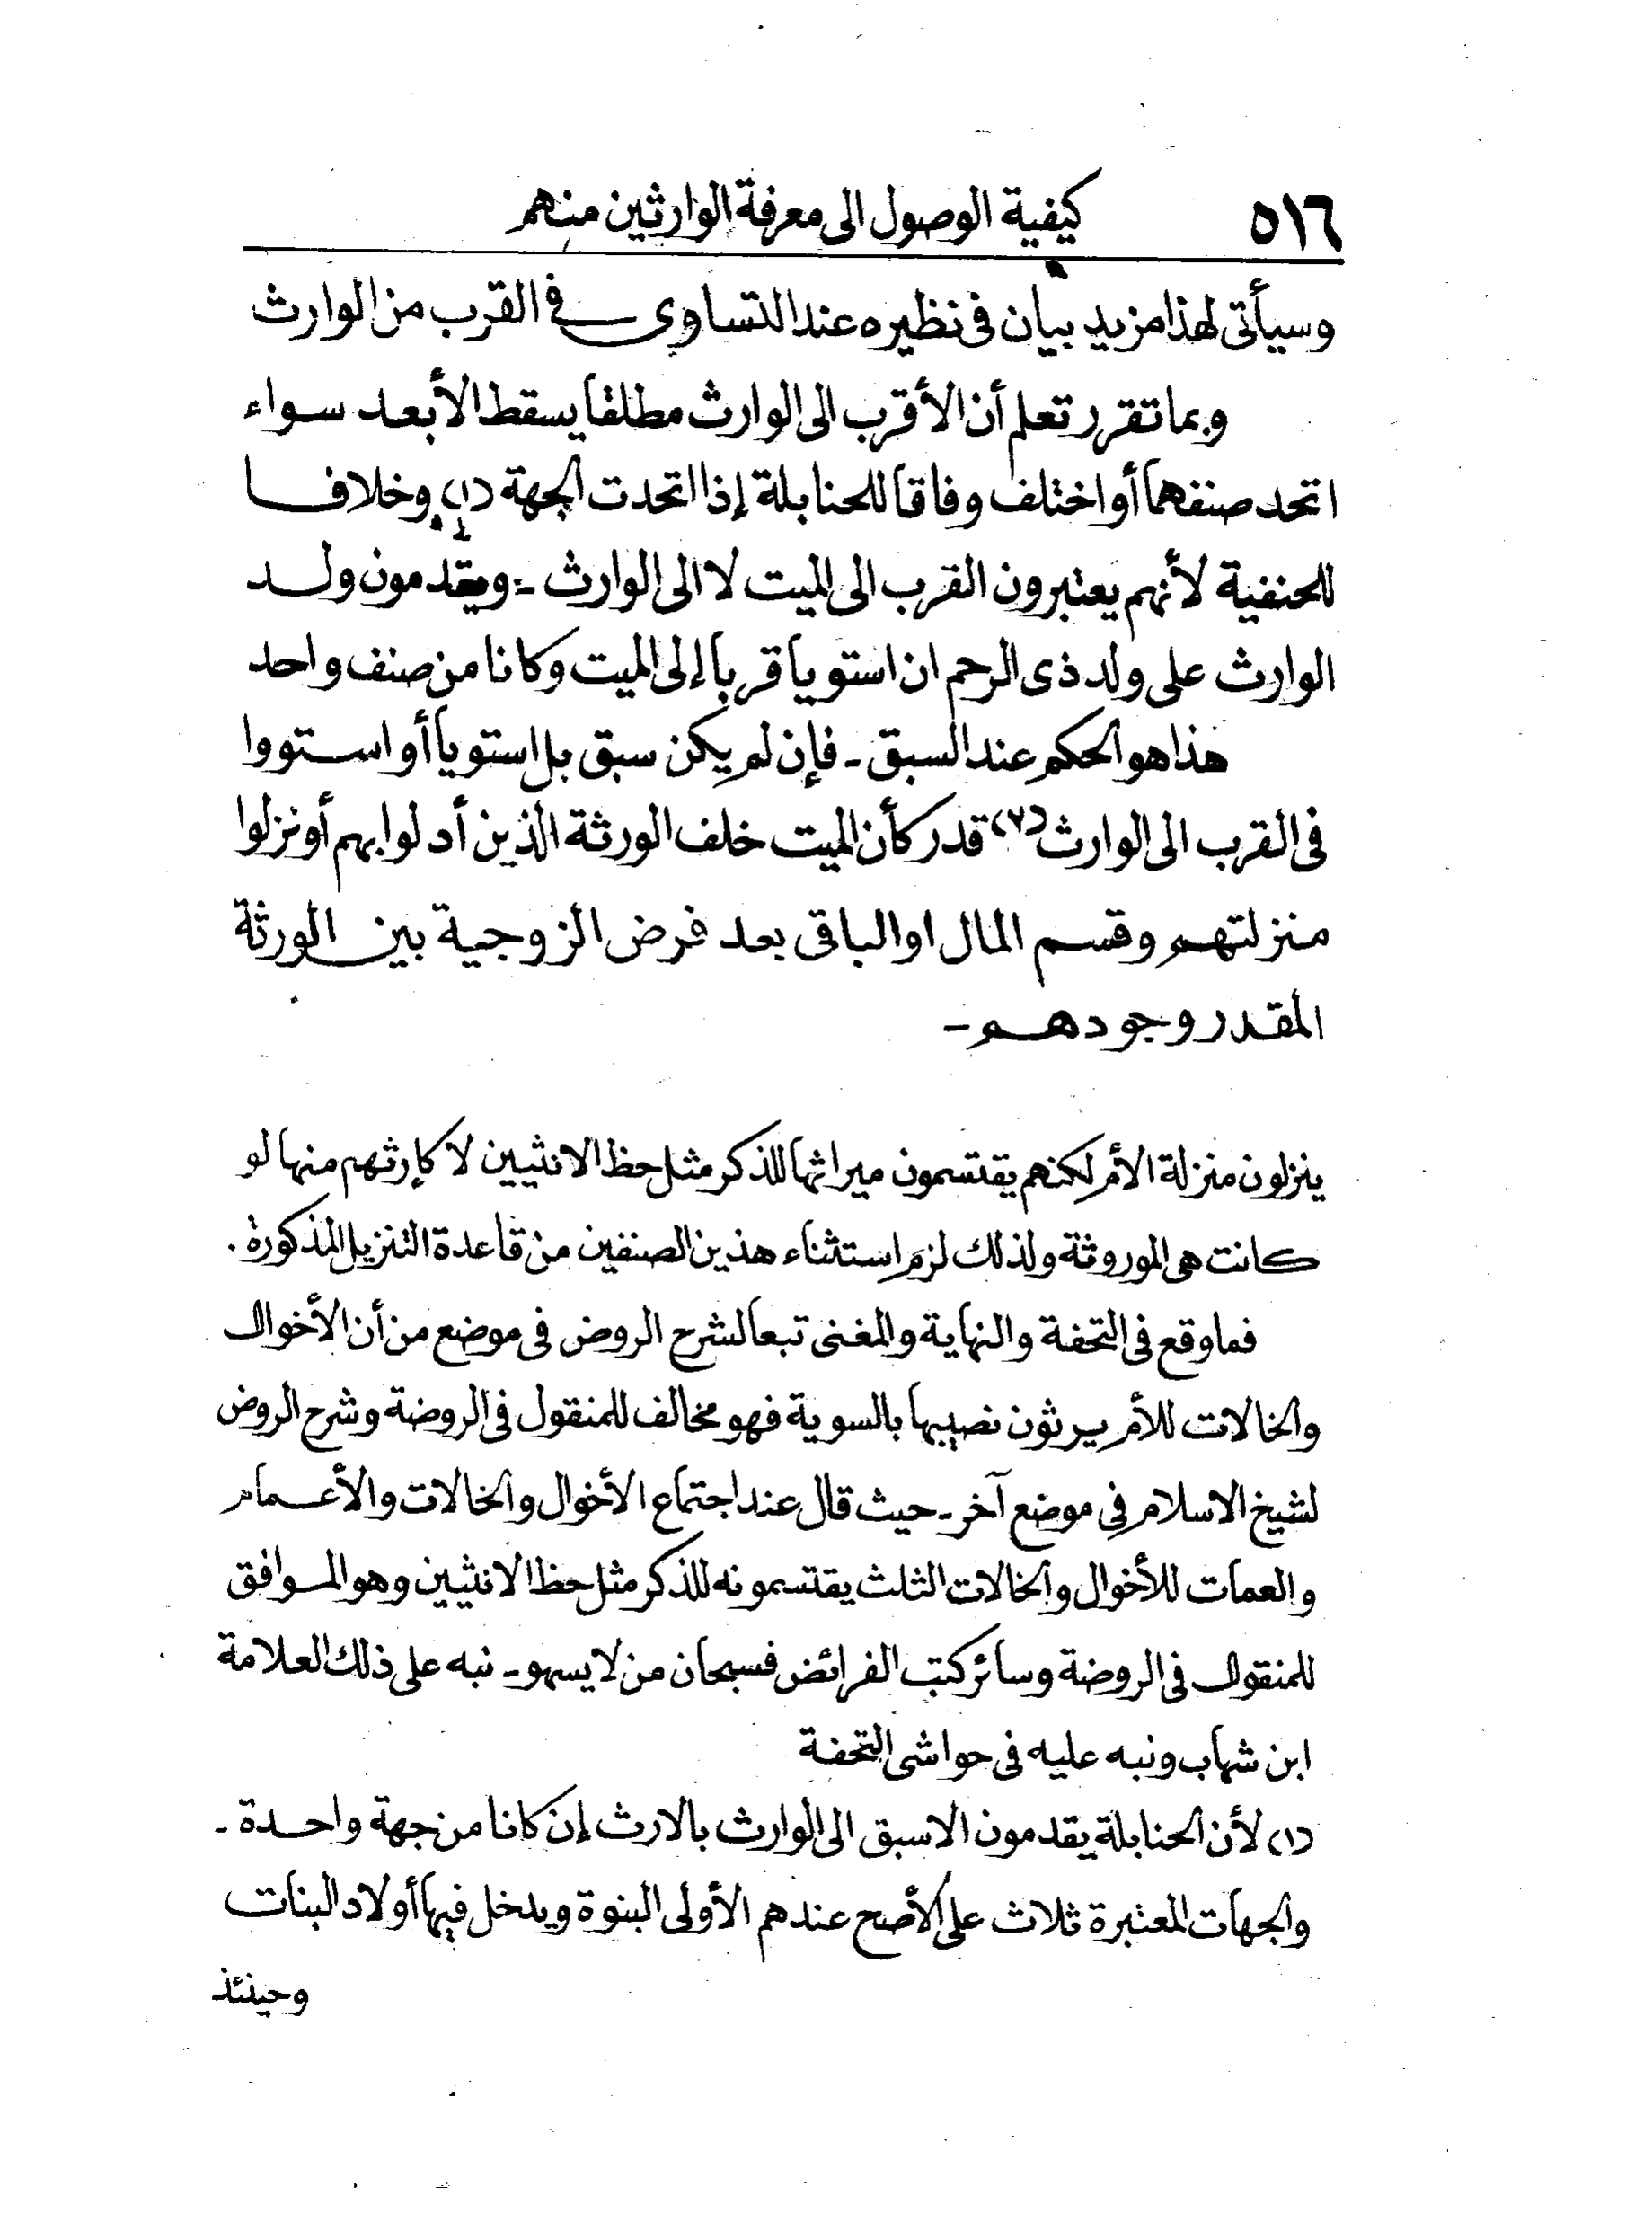 ٥١٦ كيفية الوصول الى معرفة الوارثين منهم
وسيأتى لهذا مزيد بيان فى نظيره عند التساوى فى القرب من الوارث
وبما تقرر تعلم أن الأقرب الى الوارث مطلقا يسقط الأبعد سواء
اتحد صنفهما أو اختلف وفاقا للحنابلة إذا اتحدت الجهة (١) وخلافا
للحنفية لأنهم يعتبرون القرب الى الميت لا الى الوارث - ويقدمون ولد
الوارث على ولد ذى الرحم ان استويا قربا إلى الميت وكانا من صنف واحد
هذا هو الحكم عند السبق - فإن لم يكن سبق بل استويا أو استووا
فى القرب الى الوارث (٢) قدر كأن الميت خلف الورثة الذين أدلوا بهم أو نزلوا
منزلتهم وقسم المال او الباقى بعد فرض الزوجية بين الورثة
المقدر وجودهم -
ينزلون منزلة الأم لكنهم يقتسمون ميراثها للذكر مثل حظ الانثيين لا كإرثهم منها لو
كانت هى الموروثة ولذلك لزم استثناء هذين الصنفين من قاعدة التنزيل المذكورة .
فما وقع فى التحفة والنهاية والمغنى تبعا لشرح الروض فى موضع من أن الأخوال
والخالات للأم يرثون نصيبها بالسوية فهو مخالف للمنقول فى الروضة وشرح الروض
لشيخ الاسلام فى موضع آخر - حيث قال عند اجتماع الأخوال والخالات والأعمام
والعمات للأخوال والخالات الثلث يقتسمونه للذكر مثل حظ الانثيين وهو الموافق
للمنقول فى الروضة وسائر كتب الفرائض فسبحان من لا يسهو - نبه على ذلك العلامة
ابن شهاب ونبه عليه فى حواشى التحفة
(١) لأن الحنابلة يقدمون الاسبق الى الوارث بالارث إن كانا من جهة واحدة -
والجهات المعتبرة ثلاث على الأصح عندهم الأولى البنوة ويدخل فيها أولاد البنات
وحينئذ